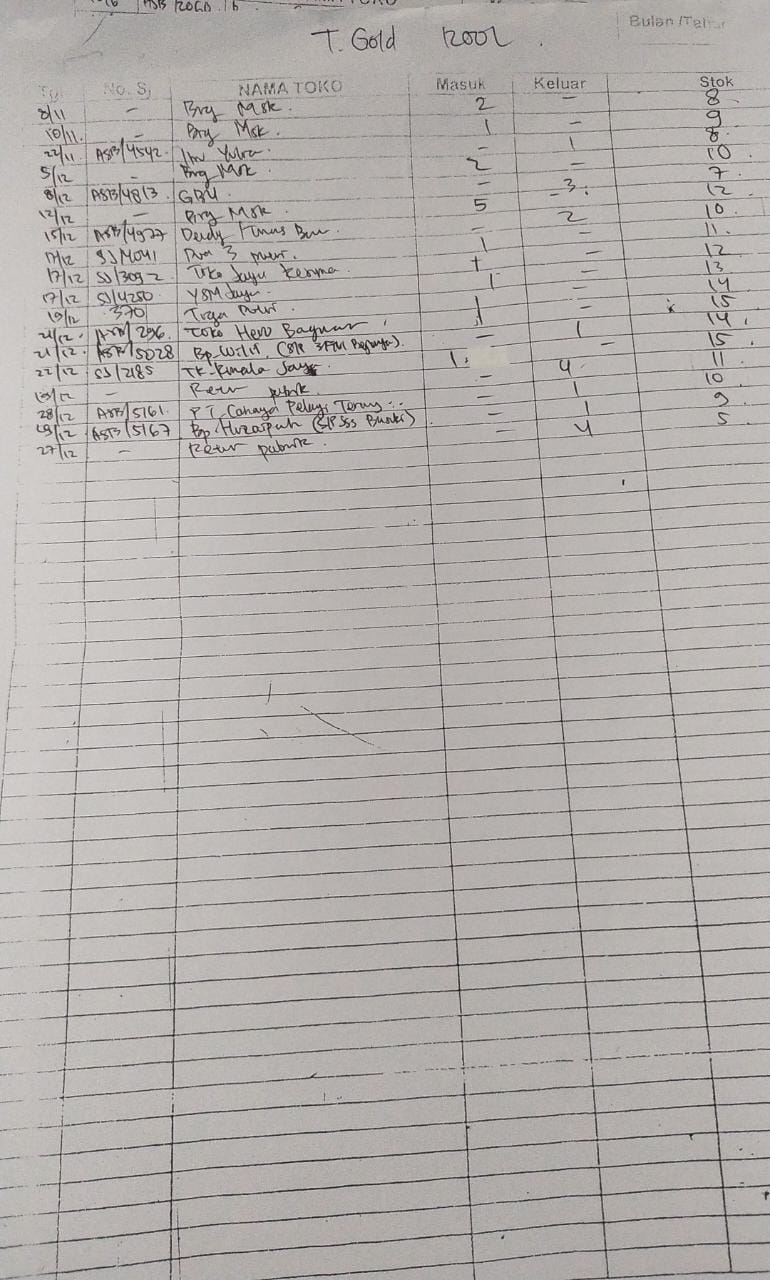 ASB 2060 16
T. Gold 1200L
Bulan /Tahun
Tgl No. SJ NAMA TOKO Masuk Keluar Stok
8/11 - Brg Msk. 2 - 8
10/11. - Brg Msk. 1 - 9
22/11 ASB/4542. Ibu Yulia. - 1 8.
5/12 - Brg Msk 2 - 10
8/12 ASB/4813. GBU. - 3. 7
12/12 - Brg Msk. 5 - 12
15/12 ASB/4977 Dendy - 2 10.
17/12 SJ/4041 3 1 - 11.
17/12 SJ/3092 Toko Jaya 1 - 12
17/12 SJ/4250 YSM Jaya. 1 - 13
19/12 370 1 - 14
21/12. /296. Toko Hero 1 - 15
21/12. ASB/5028 Bp. Wilis. - 1 14.
22/12 SJ/2185 TK. Kumala Jaya. 1. - 15
- Retur pabrik. - 4. 11
28/12 ASB/5161. PT. Cahaya Pelangi Terang - 1 10
29/12 ASB/5167 Bp. - 1 9
27/12 - Retur pabrik. - 4 5